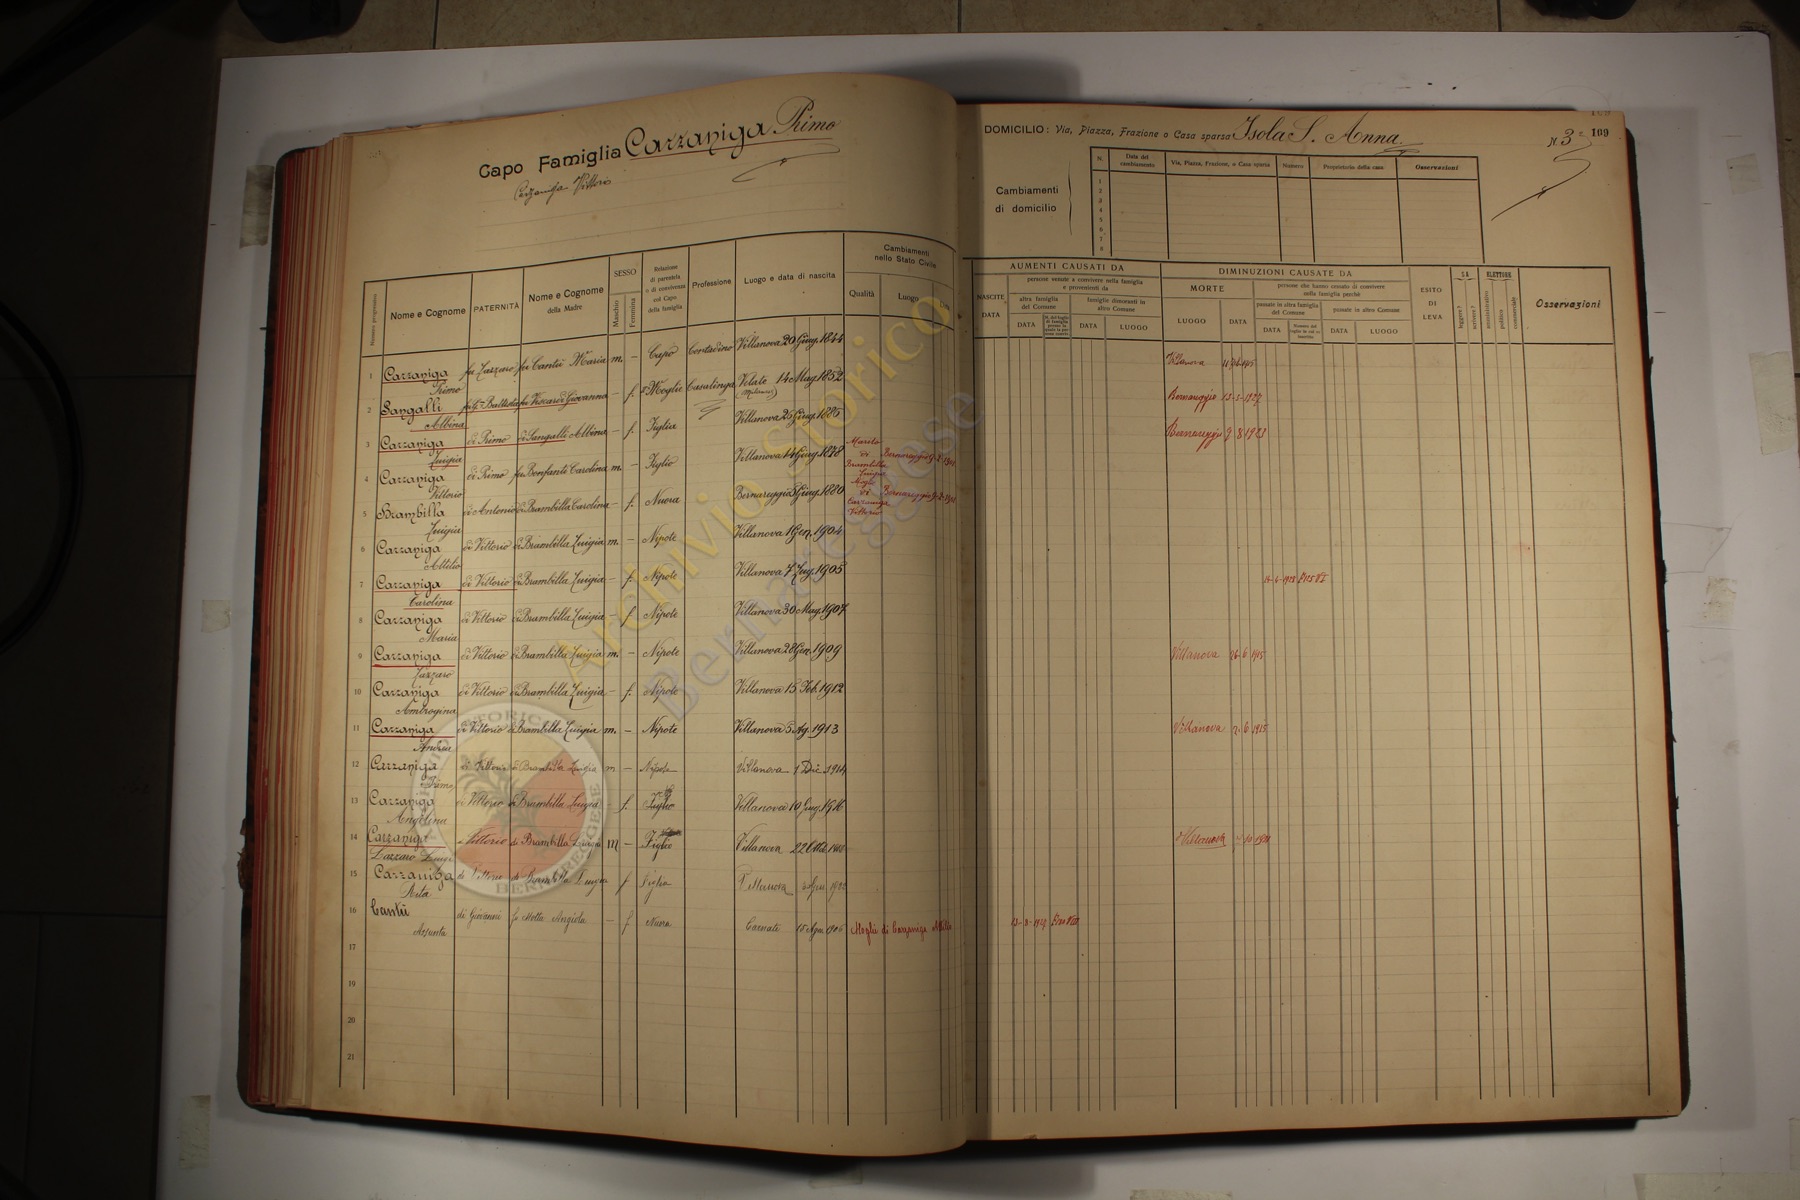 Capo Famiglia Cazzaniga Primo
Cazzaniga Vittorio
DOMICILIO: Via, Piazza, Frazione o Casa sparsa Isola S. Anna
N. 3 109
Cambiamenti di domicilio
N. Data del cambiamento Via, Piazza, Frazione, o Casa sparsa Numero Proprietario della casa Osservazioni
1
2
3
4
5
6
7
8
Numero progressivo Nome e Cognome PATERNITÀ Nome e Cognome della Madre SESSO Maschio Femmina Relazione di parentela o di convivenza col Capo della famiglia Professione Luogo e data di nascita Cambiamenti nello Stato Civile Qualità Luogo
NASCITE DATA AUMENTI CAUSATI DA persone venute a convivere nella famiglia e provenienti da altra famiglia del Comune DATA famiglie dimoranti in altro Comune DATA LUOGO
DIMINUZIONI CAUSATE DA MORTE LUOGO DATA persone che han cessato di convivere nella famiglia perchè passate in altra famiglia del Comune DATA passate in altro Comune DATA LUOGO
ESITO DI LEVA SA leggere? scrivere? ELETTORE amministrativo politico commerciale Osservazioni
1 Cazzaniga Primo fu Lazzaro fu Cantù Maria m. – Capo Contadino Villanova 20 Giug. 1844 Villanova
2 Sangalli Albina fu Gio Battista fu Viscardi Giovanna – f. Moglie Casalinga Velate (Milanese) 14 Mag. 1852 Bernareggio 13-5-1927
3 Cazzaniga Luigia di Primo di Sangalli Albina – f. Figlia Villanova 25 Giug. 1885 Bernareggio 9-8-1923
4 Cazzaniga Vittorio di Primo fu Bonfanti Carolina m. – Figlio Villanova 14 Giug. 1878 Marito di Brambilla Luigia Bernareggio
5 Brambilla Luigia di Antonio di Brambilla Carolina – f. Nuora Bernareggio 3 Giug. 1880 Moglie di Cazzaniga Vittorio Bernareggio
6 Cazzaniga Attilio di Vittorio di Brambilla Luigia m. – Nipote Villanova 1 Gen. 1904
7 Cazzaniga Carolina di Vittorio di Brambilla Luigia – f. Nipote Villanova 7 Lug. 1905
8 Cazzaniga Maria di Vittorio di Brambilla Luigia – f. Nipote Villanova 30 Mag. 1907
9 Cazzaniga Lazzaro di Vittorio di Brambilla Luigia m. – Nipote Villanova 28 Gen. 1909 Villanova 26-6-1915
10 Cazzaniga Ambrogina di Vittorio di Brambilla Luigia – f. Nipote Villanova 15 Feb. 1912
11 Cazzaniga Andrea di Vittorio di Brambilla Luigia m. – Nipote Villanova 5 Ag. 1913 Villanova 2-6-1915
12 Cazzaniga Primo di Vittorio di Brambilla Luigia m – Nipote Villanova 1 Dic. 1914
13 Cazzaniga Angelina di Vittorio di Brambilla Luigia – f. Villanova 10 Giug. 1916
14 Cazzaniga Lazzaro Luigi di Vittorio di Brambilla Luigia m – Figlio Villanova 22 Villanova
15 Cazzaniga Rita di Vittorio di Brambilla Luigia f Figlia Villanova
16 Cantù Assunta di Giovanni fu Motta Angiola – f Nuora Carnate 15 Moglie di Cazzaniga Attilio
17
18
19
20
21
Archivio Storico
Bernareggese